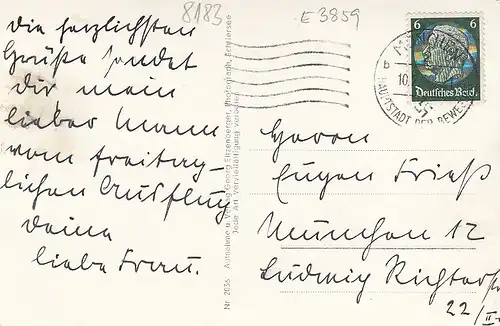 8183
E 3859
die herzlichsten
Grüße sendet
dir mein
lieber Mann
vom freitäg-
lichen Ausflug
deine
liebe Frau.
Nr. 2036 Aufnahme u. Verlag Georg Etzenberger, Photograph, Schliersee
Jede Art Vervielfältigung vorbehalten
6 6
Deutsches Reich
MÜNCHEN
b 10.
HAUPTSTADT DER BEWEG
Herrn
Eugen Frieß
München 12
Ludwig Richterstr
22/II